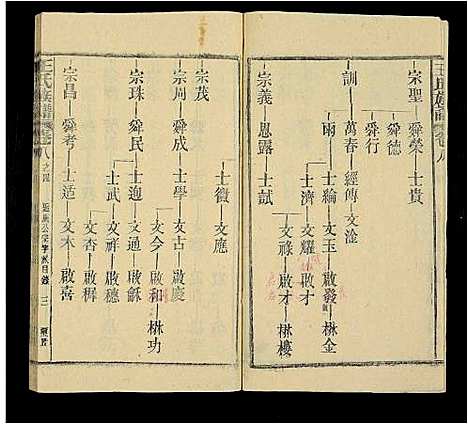 王氏族譜 卷八
宗聖 舜榮 士貴
舜德
舜行
訓 萬春 經傳 文淦
雨 士綸 文玉 啟發 楙金
士濟 文耀 啟才
文祿 啟才 楙樓
宗義 恩露 士試
宗茂
士徵 文應
宗周 舜成 士學 文古 啟慶
文今 啟和 楙功
宗珠 舜民 士迿 文通 啟龢
士武 文祥 啟穗
文杏 啟樨
宗昌 舜考 士适 文木 啟喜
王氏族譜 卷八